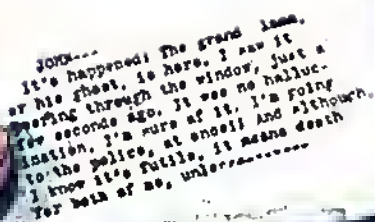 JOHN---
It's happened! The grand lama,
or his ghost, is here. I saw it
peering through the window, just a
few seconds ago. It was no halluc-
ination, I'm sure of it. I'm going
to the police, at once!! And although,
I know it's futile, it means death
for both of us, unless----------